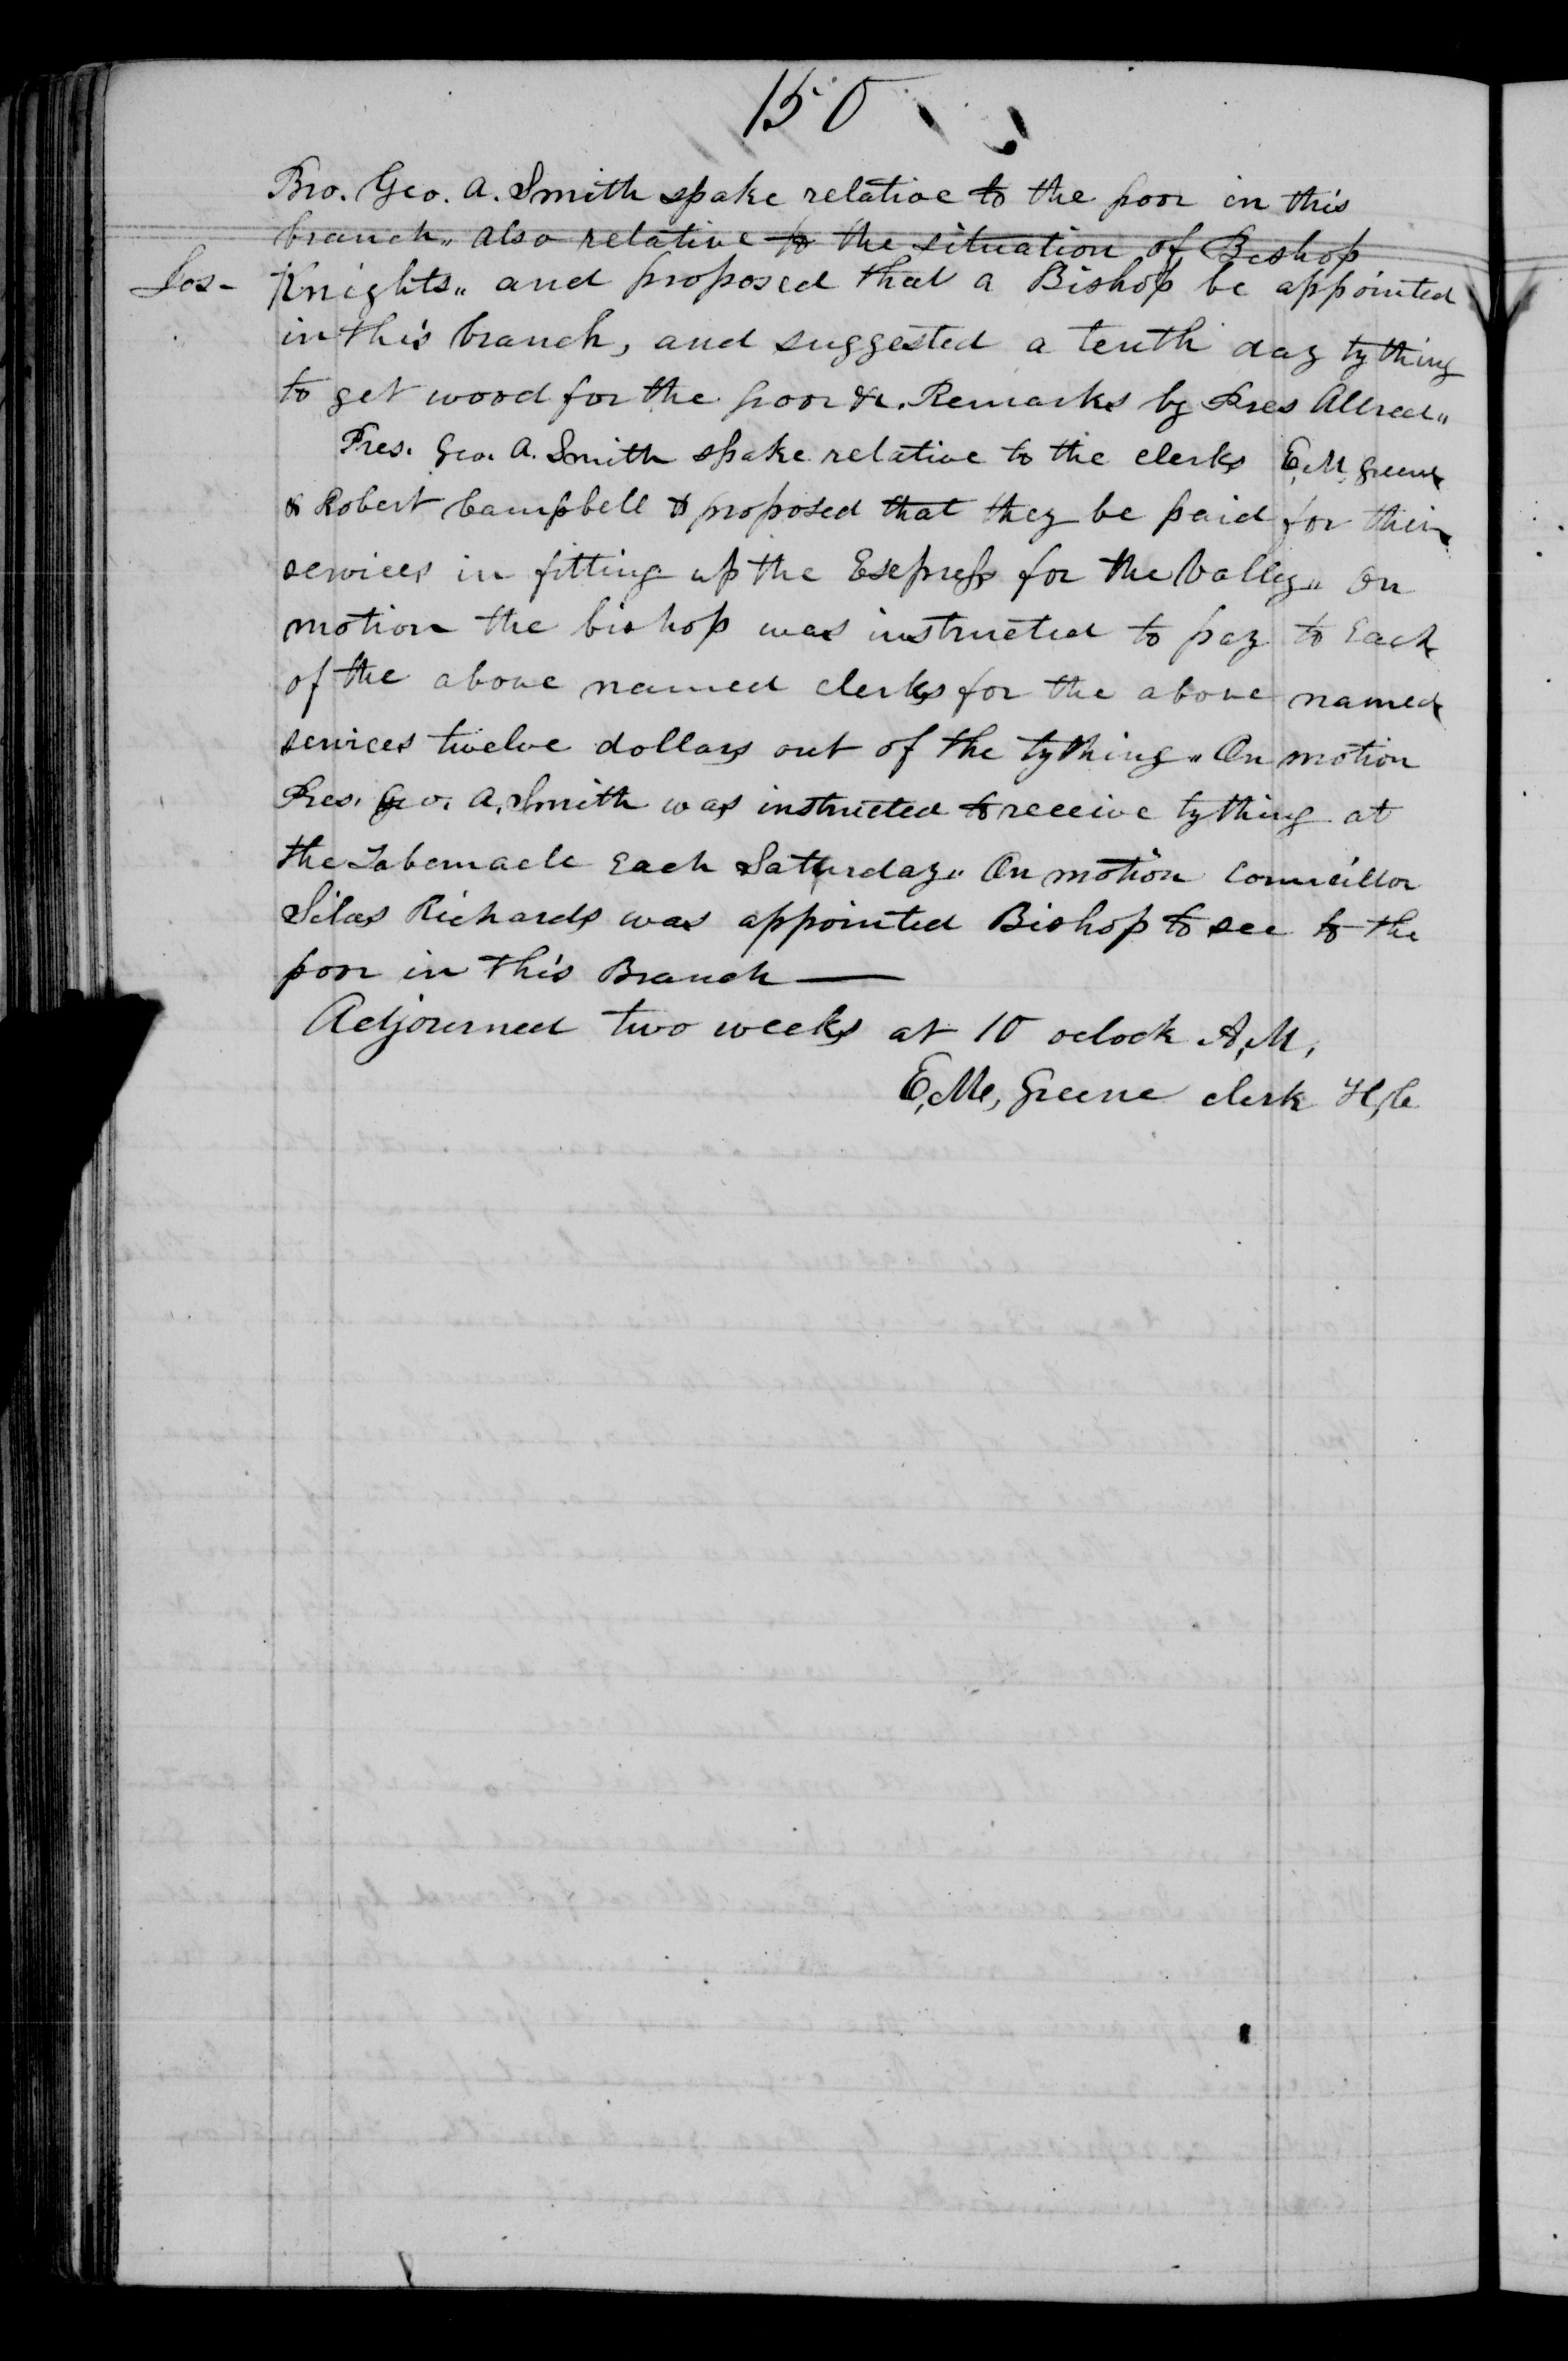 150
Bro. Geo. A. Smith spake relative to the poor in this
branch„ also relative to the situation of Bishop
Jos- Knights„ and proposed that a Bishop be appointed
in this branch, and suggested a tenth day tything
to get wood for the poor &c. Remarks by Pres Allred„
Pres. Geo. A. Smith spake relative to the clerks E,M, Greene
& Robert Campbell & proposed that they be paid for their
services in fitting up the Express for the Valley„ On
motion the bishop was instructed to pay to Each
of the above named clerks for the above named
services twelve dollars out of the tything„ On motion
Pres. Geo. A. Smith was instructed to receive tything at
the Tabernacle Each Saturday„ On motion Councillor
Silas Richards was appointed Bishop to see to the
poor in this Branch —
Adjourned two weeks at 10 oclock A,M,
E,M, Greene clerk H,C